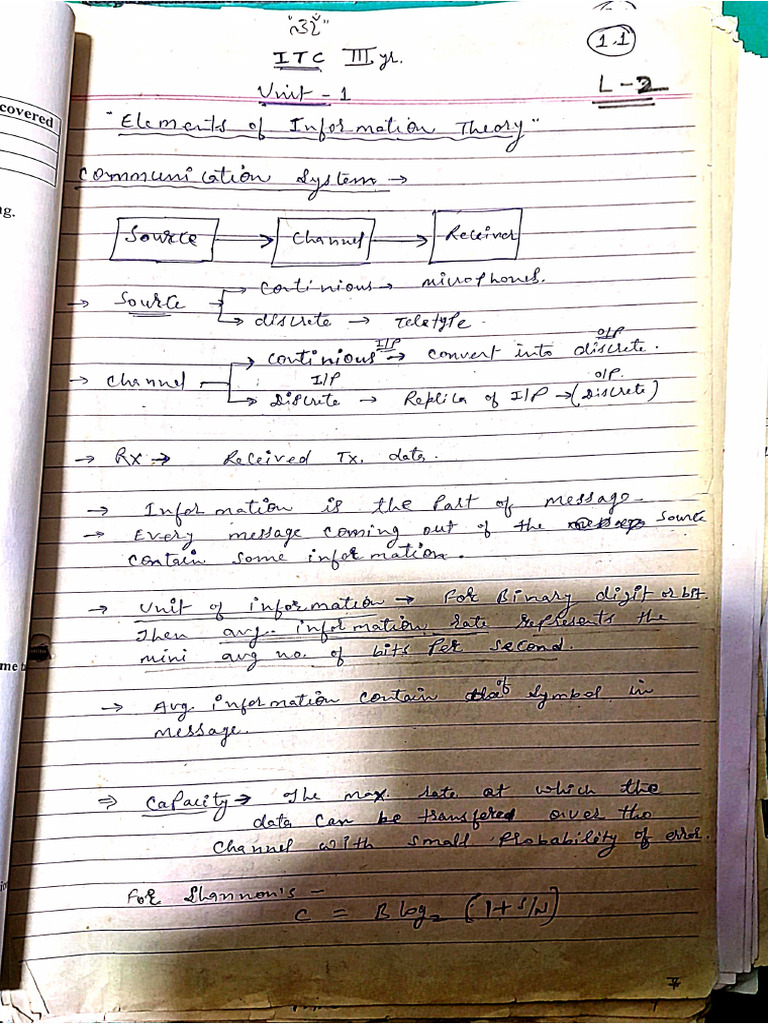 "ॐ"
1.1
ITC III yr.
Unit - 1
L-2
covered
"Elements of Information Theory"
Communication System →
ng.
Source → Channel → Receiver
→ Source → Continious → microphones.
→ discrete → Teletype.
→ Channel → Continious I/P → convert into discrete O/P.
→ Discrete I/P → Replica of I/P → (Discrete) O/P.
→ Rx → Received Tx. data.
→ Information is the Part of message
→ Every message coming out of the source
contain some information.
→ Unit of information → For Binary digit or bit.
Then avg. information rate represents the
mini avg no. of bits Per second.
→ Avg. information contain of symbol in
message.
⇒ Capacity → The max. rate at which the
data can be transfered over the
channel with small Probability of error.
For Shannon's -
C = B log₂ (1 + S/N)